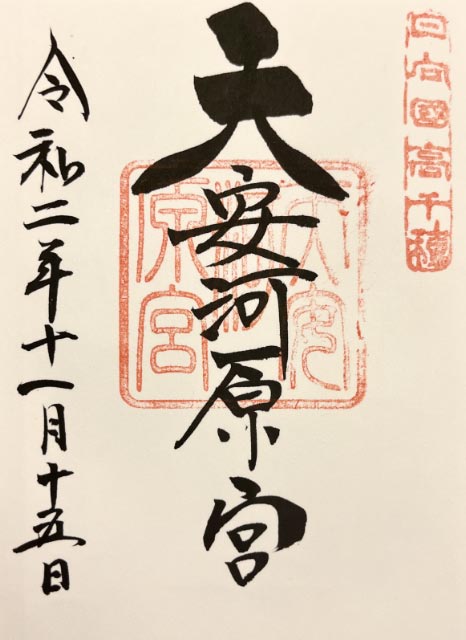 日向國高千穂
天安河原宮
天安河原宮
令和二年十一月十五日